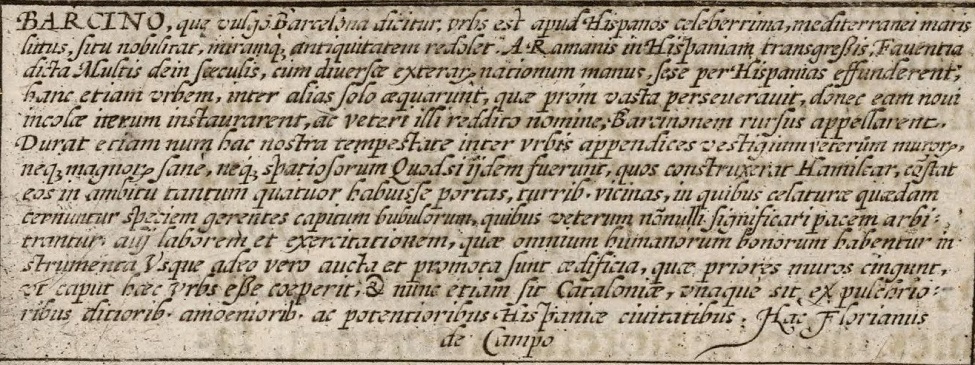 BARCINO, que vulgò Barcelóna dicitur, vrbs est apud Hispanos celeberrima, mediterranei maris
littus, situ nobilitat, miramq₃ antiquitatem redolet. A Ramanis in Hispaniam transgreßis, Fauentia
dicta Multis dein sæculis, cum diuersæ exterarꝝ nationum manus, sese per Hispanias effunderent,
hanc etiam vrbem, inter alias solo æquarunt, quæ proin vasta perseuerauit, donec eam noui
incolæ iterum instaurarent, ac veteri illi reddito nomine, Barcinonem rursus appellarent.
Durat etiam num hac nostra tempestate inter vrbis appendices vestigium veterum murorꝝ,
neq₃ magnorꝝ sanè, neq₃ spatiosorum Quod si ijdem fuerunt, quos construxerat Hamilcar, cõstat
eos in ambitu tantum quatuor habuisse portas, turrib. vicinas, in quibus celaturæ quædam
cernuntur speciem gerentes capitum bubulorum, quibus veterum nõnulli significari pacem arbi-
trantur. alij laborem et exercitationem, quæ omnium humanorum bonorum habentur in-
strumenta, Vsque adeo vero aucta et promota sunt ædificia, quæ priores muros cingunt,
vt caput hæc vrbs eße coeperit, & nunc etiam sit Cataloniæ, vnaque sit ex pulchrio-
ribus ditiorib. amoeniorib. ac potentioribus Hispaniæ ciuitatibus. Hac Florianus
de Campo